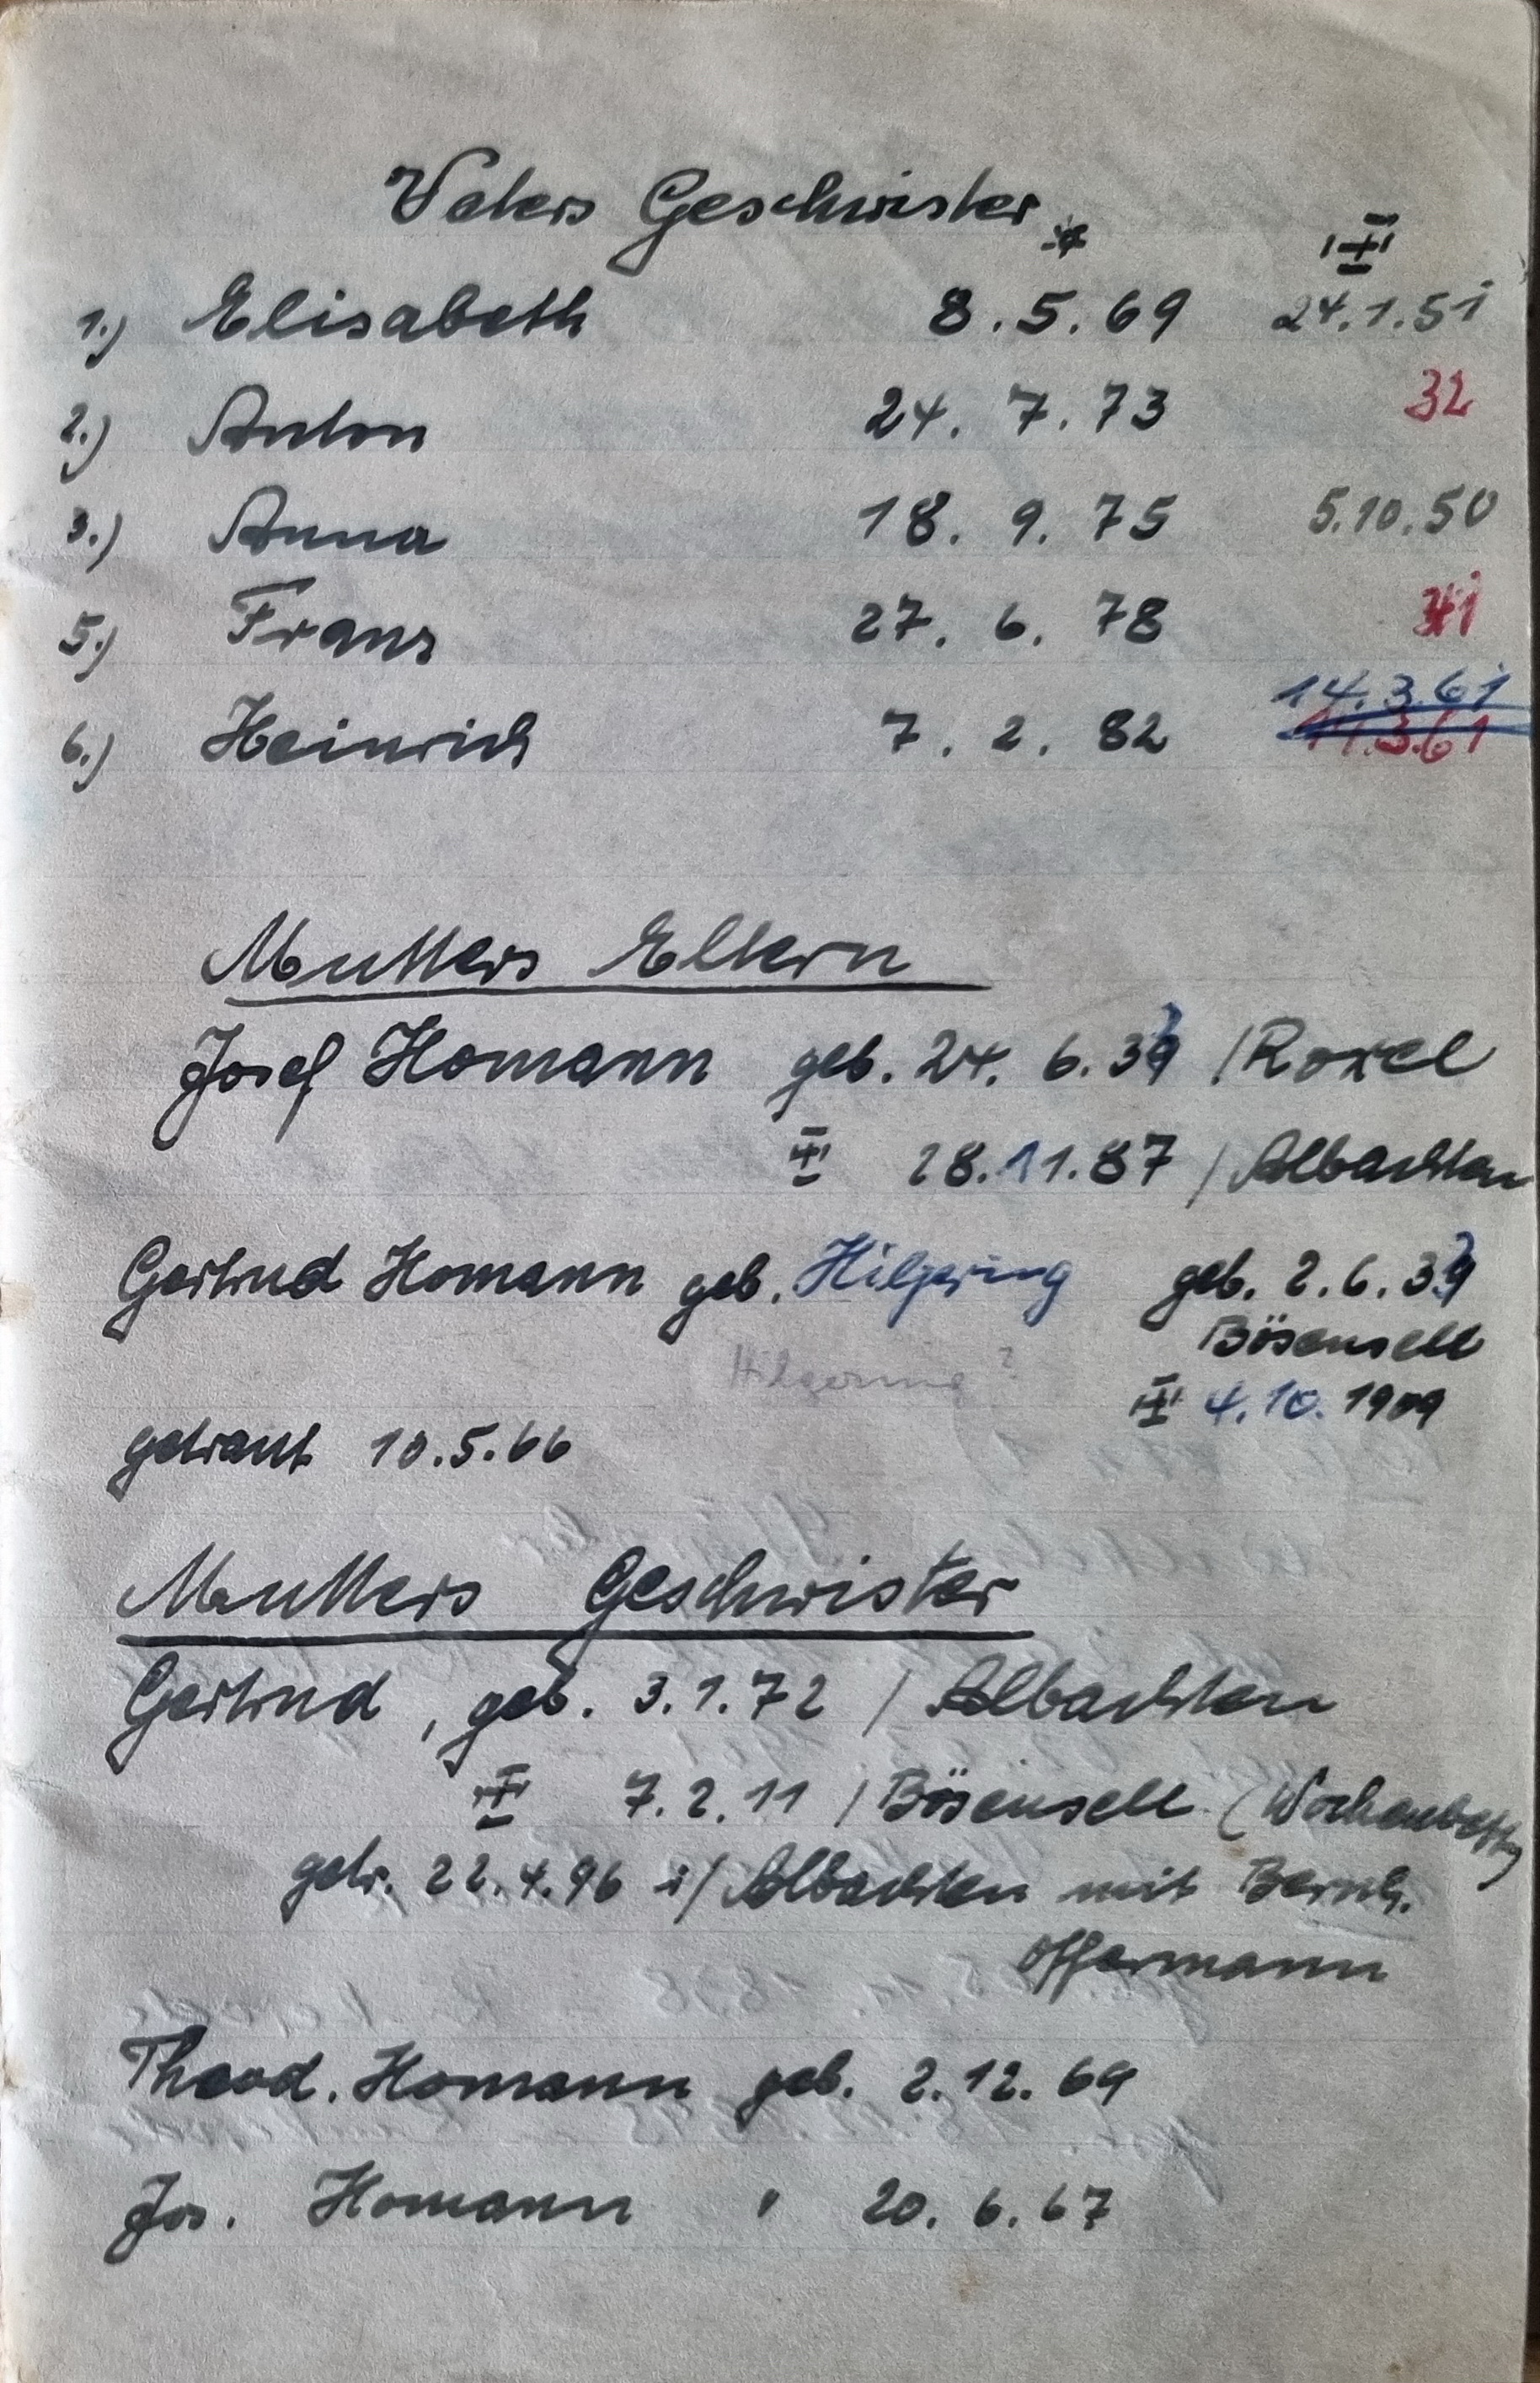 Vaters Geschwister
* ✝
1.) Elisabeth 8.5.69 24.1.51
2.) Anton 24.7.73 32
3.) Anna 18.9.75 5.10.50
5.) Franz 27.6.78
14.3.61
6.) Heinrich 7.2.82 14.3.61
Mutters Eltern
Josef Homann geb. 24.6.39 /Roxel
✝ 28.11.87 /Albachten
Gertrud Homann geb. Hilgering geb. 2.6.39
Bösensell
Hilgering?
✝ 4.10.1909
getraut 10.5.66
Mutters Geschwister
Gertrud, geb. 3.1.72 / Albachten
✝ 7.2.11 / Bösensell (Wochenbett)
getr. 22.4.96 i/ Albachten mit Bernh.
Offermann
Theod. Homann geb. 2.12.69
Jos. Homann " 20.6.67